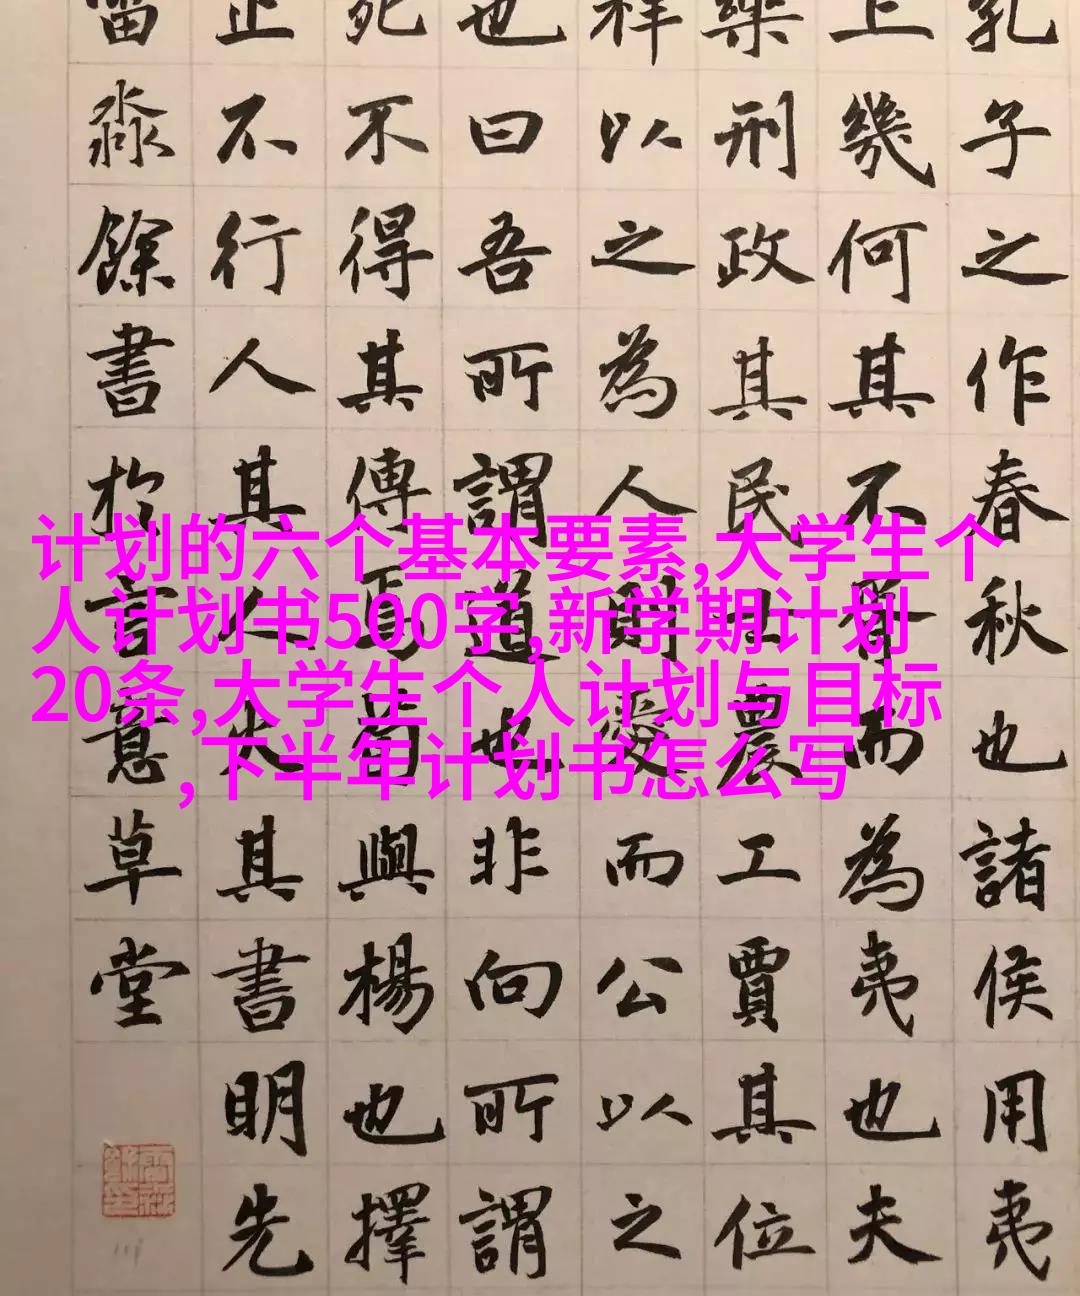 计划的六个基本要素,大学生个
人计划书500字,新学期计划
20条,大学生个人计划与目标
,下半年计划书怎么写
孔子之作春秋也諸侯用夷
上幾何其不胥而為夷也夫
樂刑政其民士農工賈其位
祥以之為人則愛而公以之
也曰吾所謂道也非向所謂
死不得其傳焉荀與楊也擇
止不行人其人火其書明先
淼餘書於言意草堂